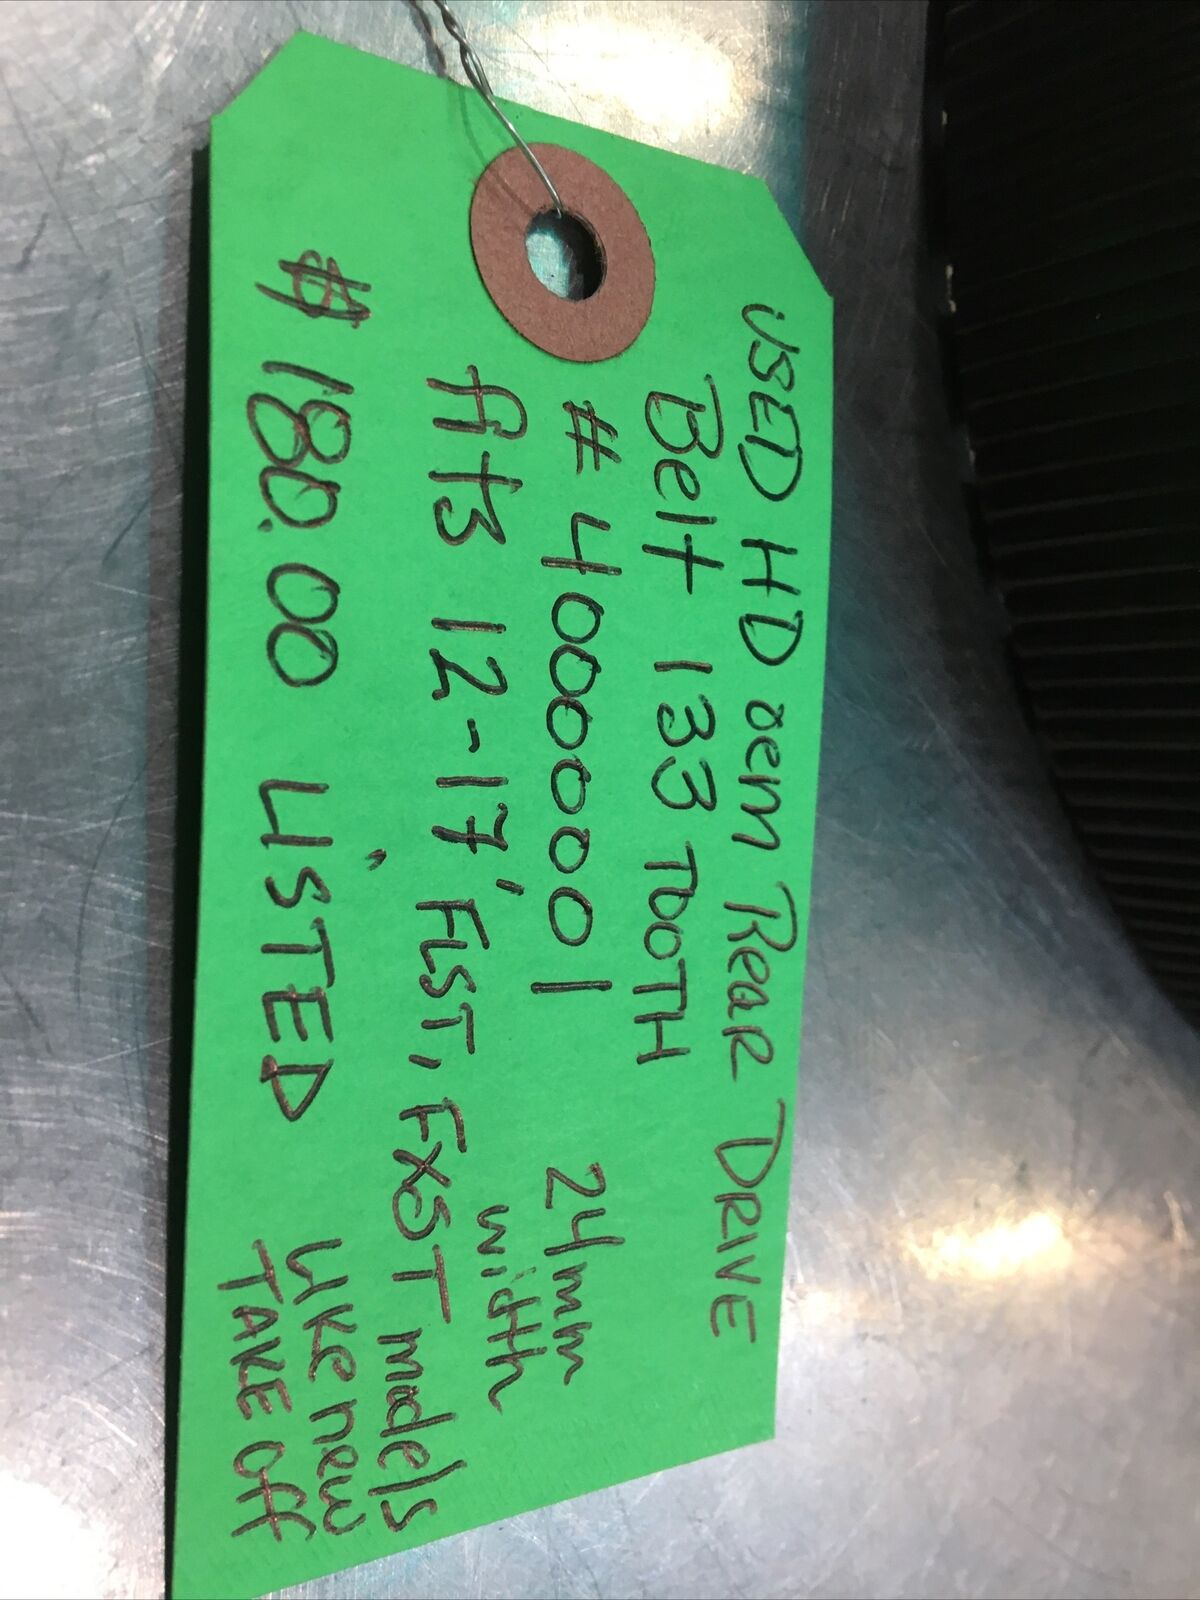 USED HD oem Rear DRIVE
Belt 133 TOOTH
# 40000001 24mm width
fits 12-17' FLST, FXST models
$180.00 LISTED Like new TAKE off